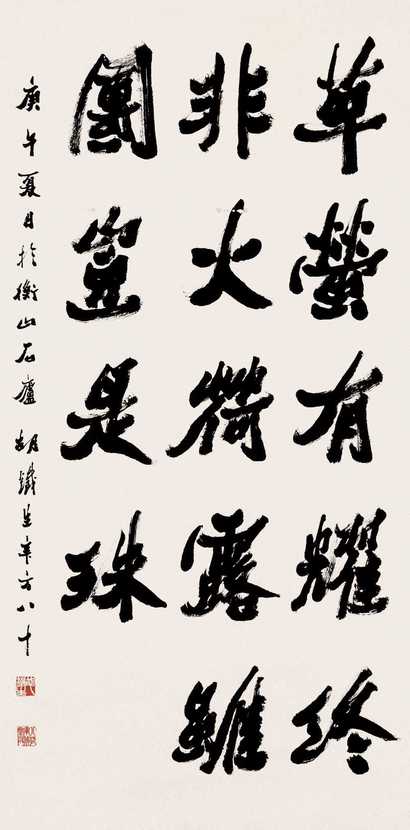 草螢有耀終
非火荷露雖
團豈是珠
庚午夏日於衡山石廬 胡鐵生年方八十